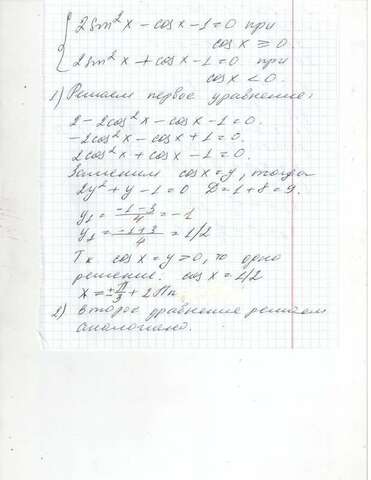 2sin²x - cosx - 1 = 0 при
cosx ≥ 0.
2sin²x + cosx - 1 = 0 при
cosx < 0.
1) Решаем первое уравнение:
2 - 2cos²x - cosx - 1 = 0.
-2cos²x - cosx + 1 = 0.
2cos²x + cosx - 1 = 0.
Заменим cosx = y, тогда
2y² + y - 1 = 0 D = 1 + 8 = 9.
y₁ = (-1-3)/4 = -1
y₁ = (-1+3)/4 = 1/2
Тк cosx = y ≥ 0, то одно
решение. cosx = 1/2
x = ±π/3 + 2πn
2) Второе уравнение решаем
аналогично.